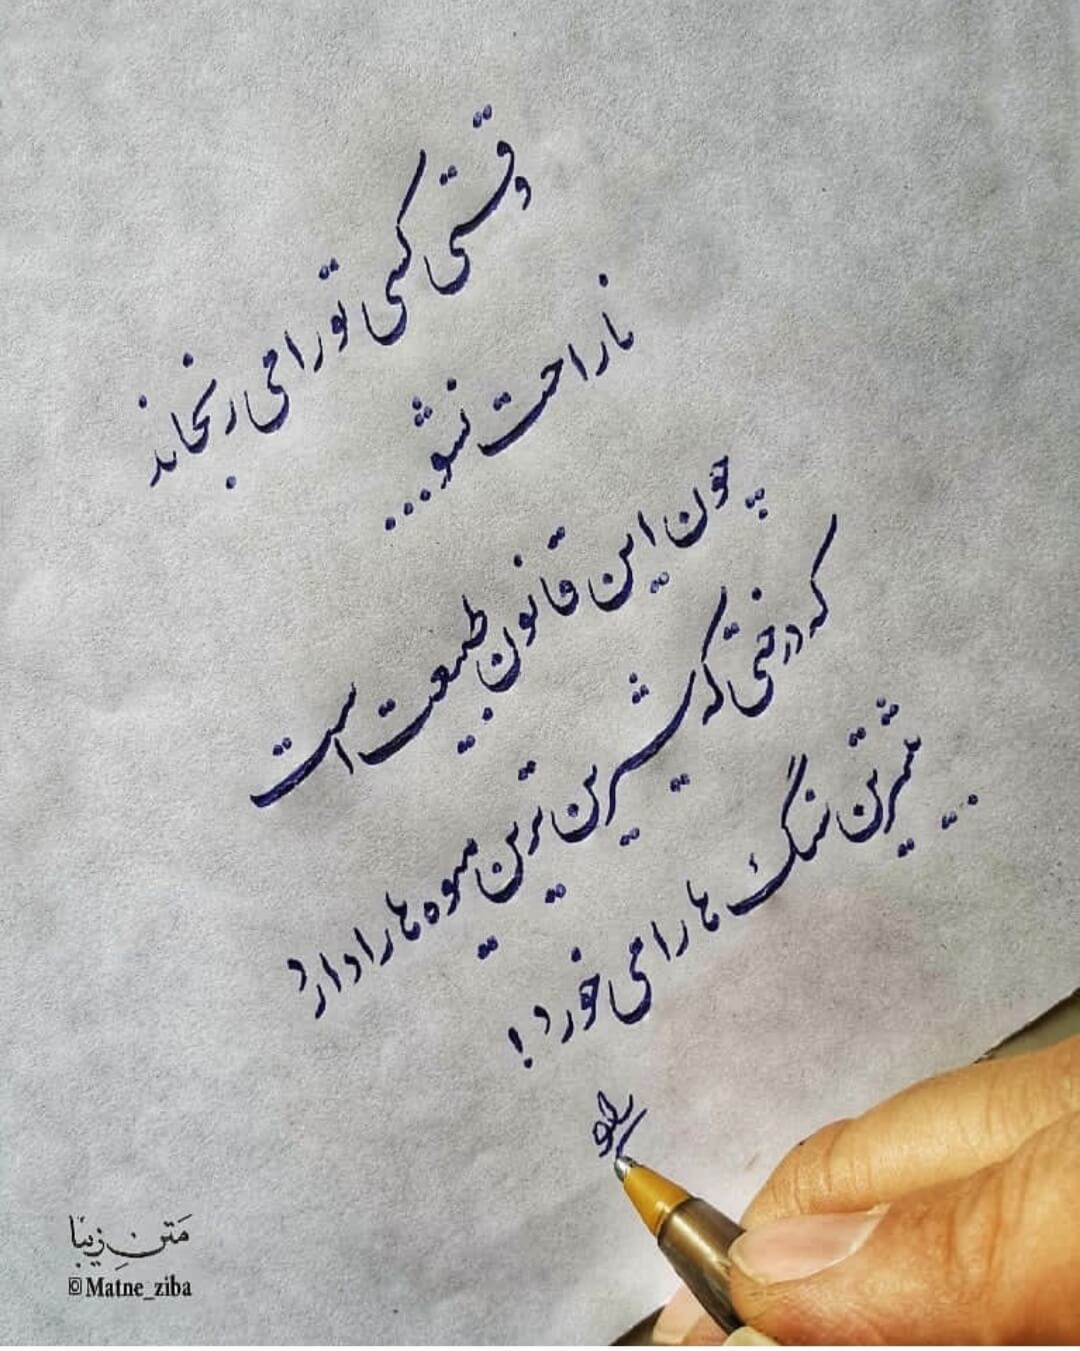 وقتی کسی تو را می رنجاند
ناراحت نشو...
چون این قانون طبیعت است
که درختی که شیرین ترین میوه ها را دارد
بیشترین سنگ ها را می خورد!
مَتنِ زیبا
©Matne_ziba